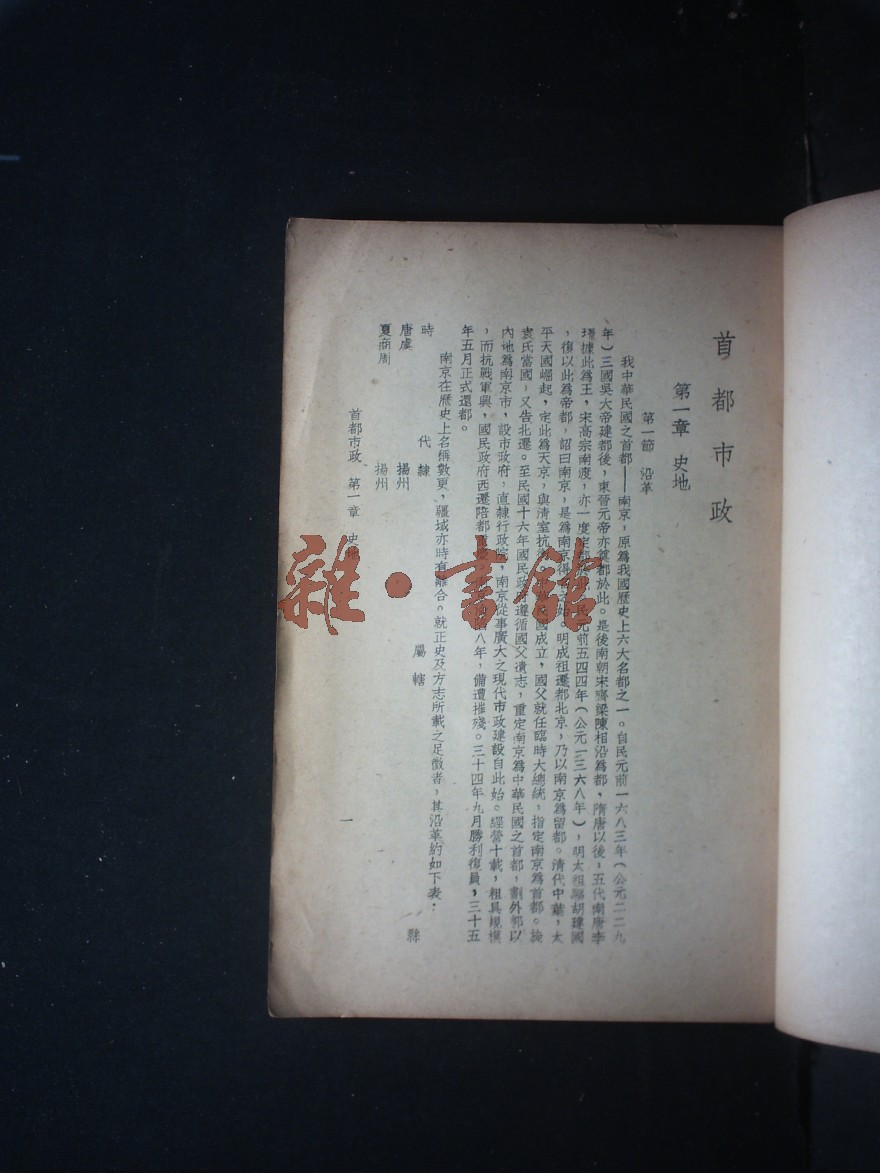 首都市政
第一章 史地
第一節 沿革
我中華民國之首都——南京,原爲我國歷史上六大名都之一。自民元前一六八三年(公元二二九
年)三國吳大帝建都後,東晉元帝亦奠都於此。是後南朝宋齊梁陳相沿爲都,隋唐以後,五代南唐李
據此爲王,宋高宗南渡,亦一度定都於此。民元前五四四年(公元一三六八年),明太祖驅胡建國
,復以此爲帝都,詔曰南京,是爲南京得名之始。明成祖遷都北京,乃以南京爲留都。清代中葉,太
平天國崛起,定此爲天京,與清室抗衡。民國成立,國父就任臨時大總統,指定南京爲首都。旋
袁氏當國,又告北遷。至民國十六年國民政府遵循國父遺志,重定南京爲中華民國之首都,劃外郭以
內地爲南京市,設市政府,直隸行政院,南京從事廣大之現代市政建設自此始。經營十載,粗具規模
,而抗戰軍興,國民政府西遷陪都重慶,八年,備遭摧殘。三十四年九月勝利復員,三十五
年五月正式還都。
南京在歷史上名稱數更,疆域亦時有離合。就正史及方志所載之足徵者,其沿革約如下表:
時代 隸 屬 轄 縣
唐虞 揚州
夏商周 揚州
首都市政 第一章 史地 一
雜·書館